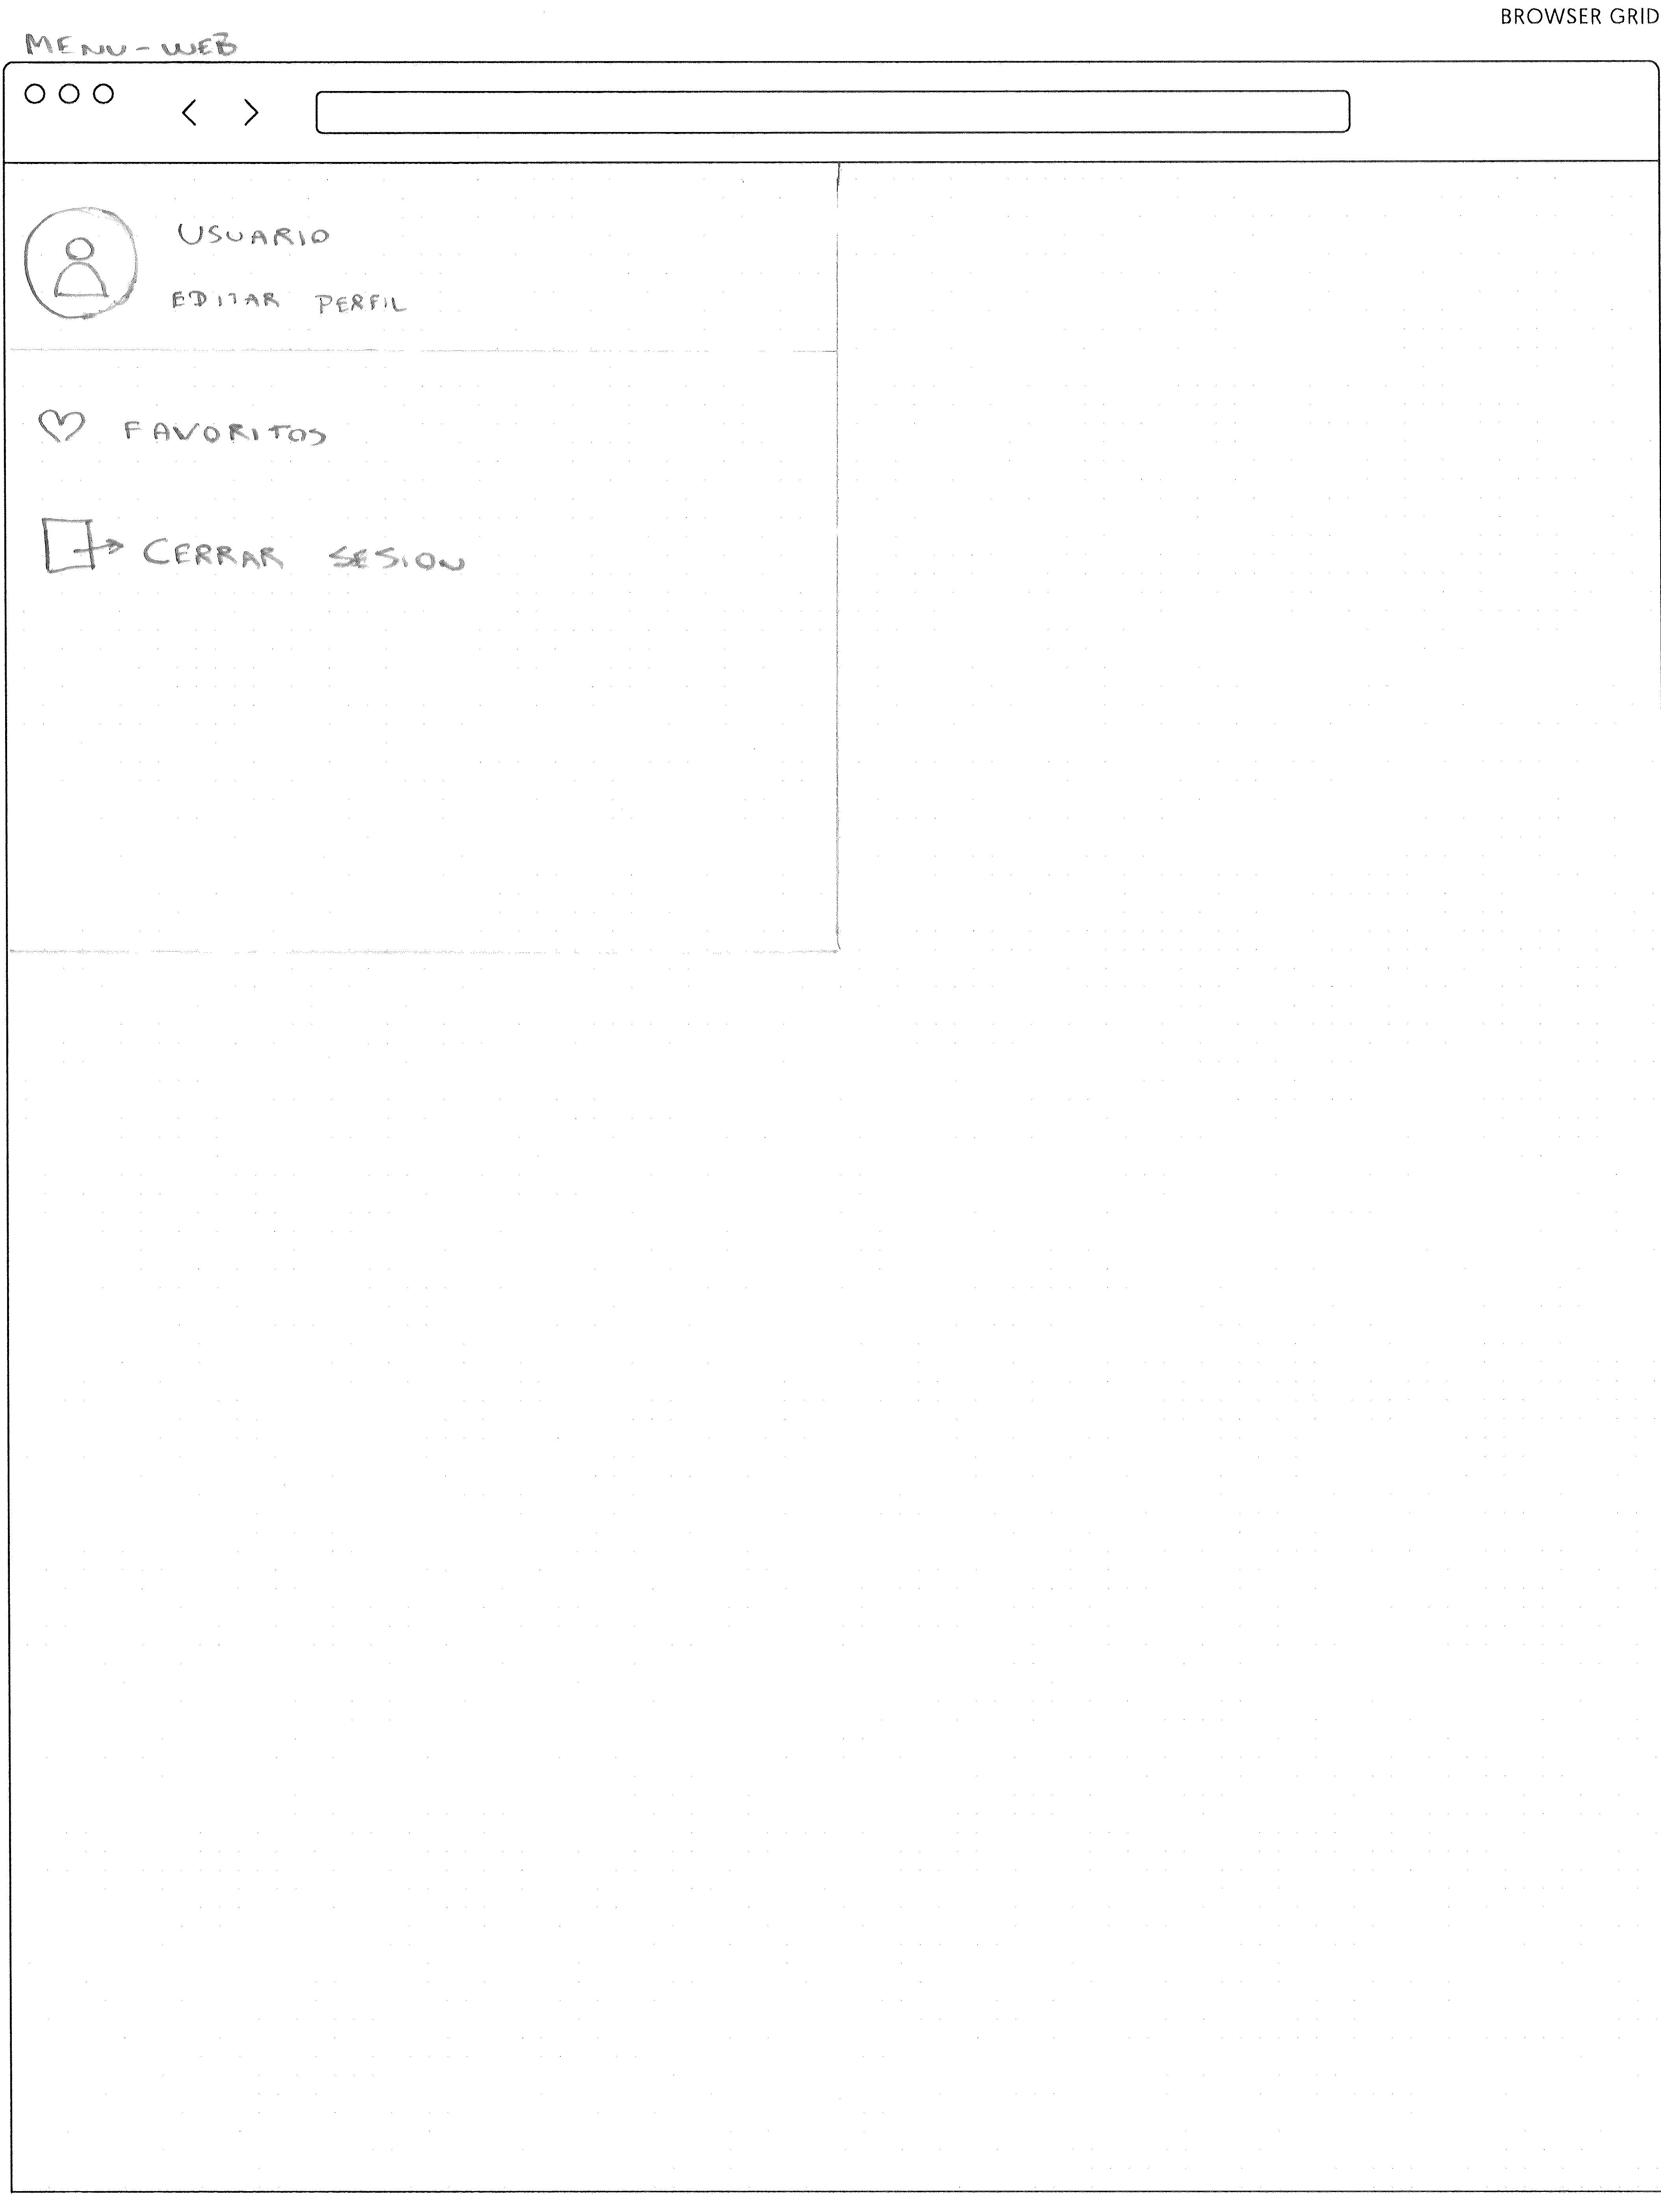 BROWSER GRID
MENU-WEB
USUARIO
EDITAR PERFIL
FAVORITOS
CERRAR SESION